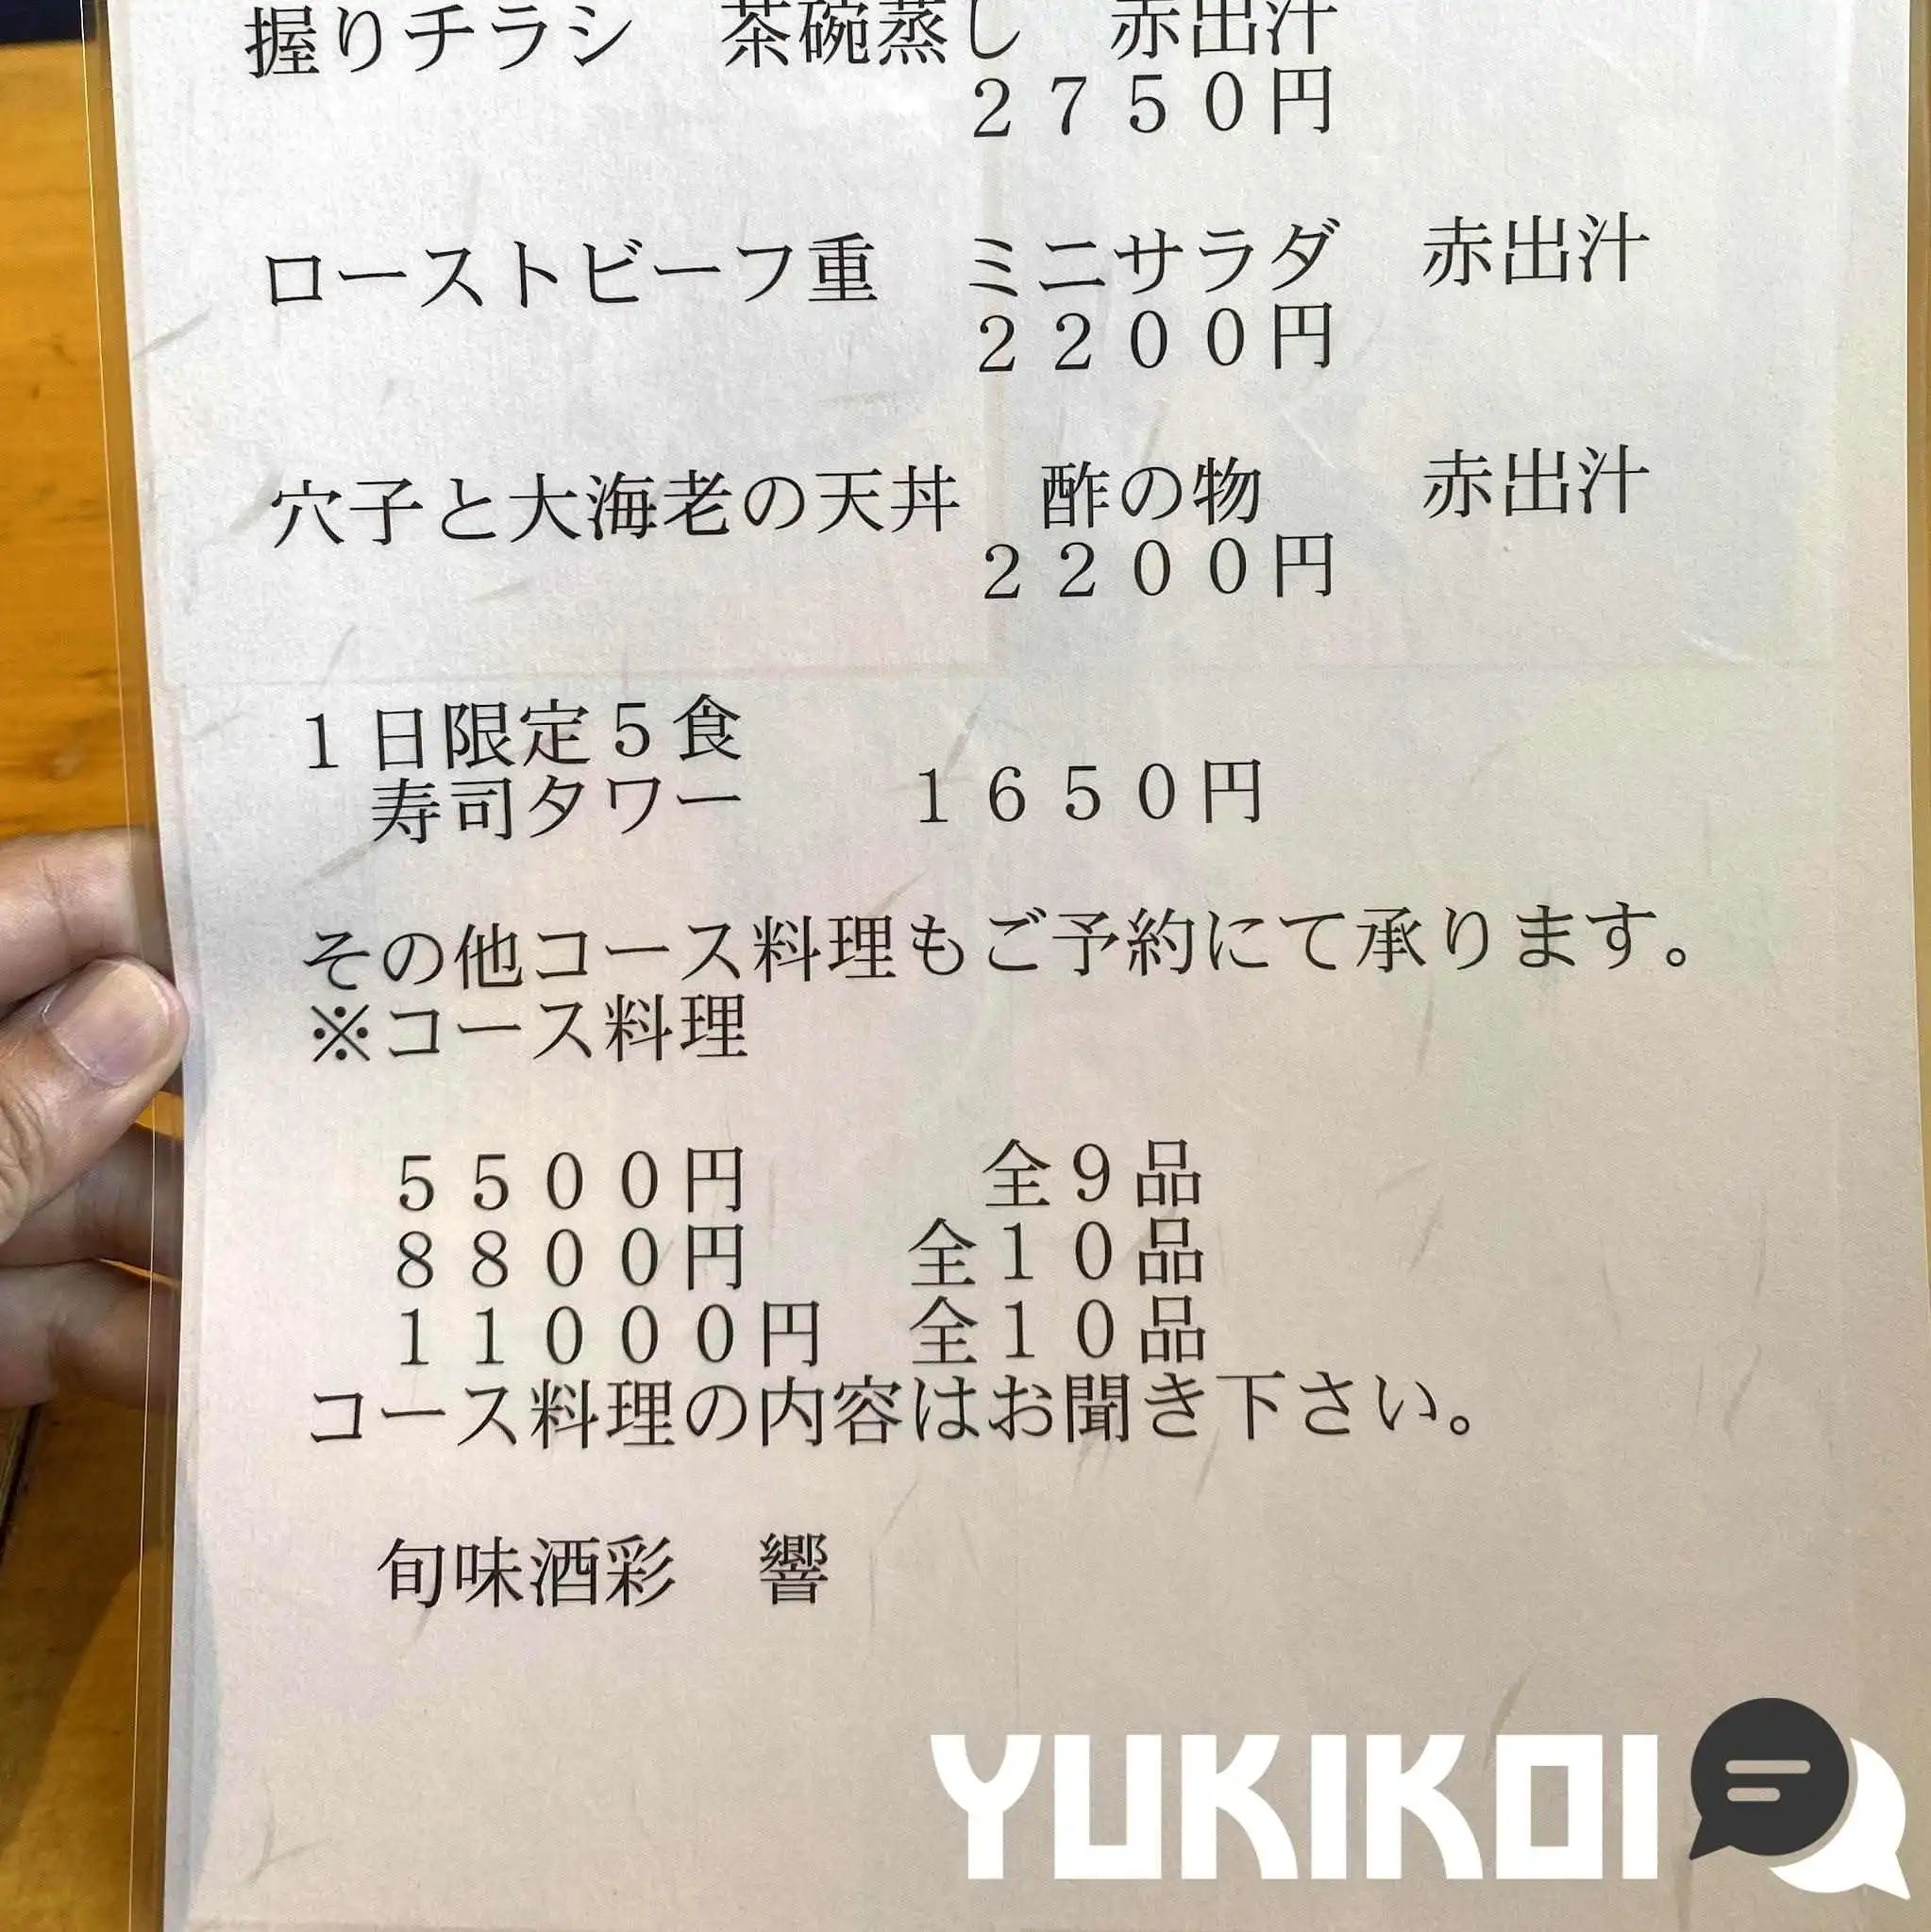 握りチラシ　茶碗蒸し　赤出汁
２７５０円
ローストビーフ重　ミニサラダ　赤出汁
２２００円
穴子と大海老の天丼　酢の物　　赤出汁
２２００円
１日限定５食
寿司タワー　　１６５０円
その他コース料理もご予約にて承ります。
※コース料理
５５００円　　　全９品
８８００円　　全１０品
１１０００円　全１０品
コース料理の内容はお聞き下さい。
旬味酒彩　響
YUKIKOI